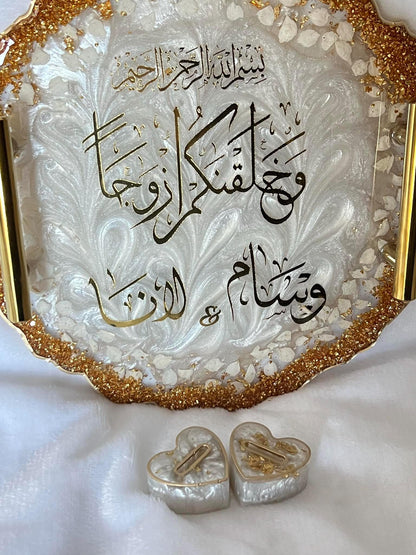 بسم الله الرحمن الرحيم
وخلقنكم ازوجا
وسام & لانا